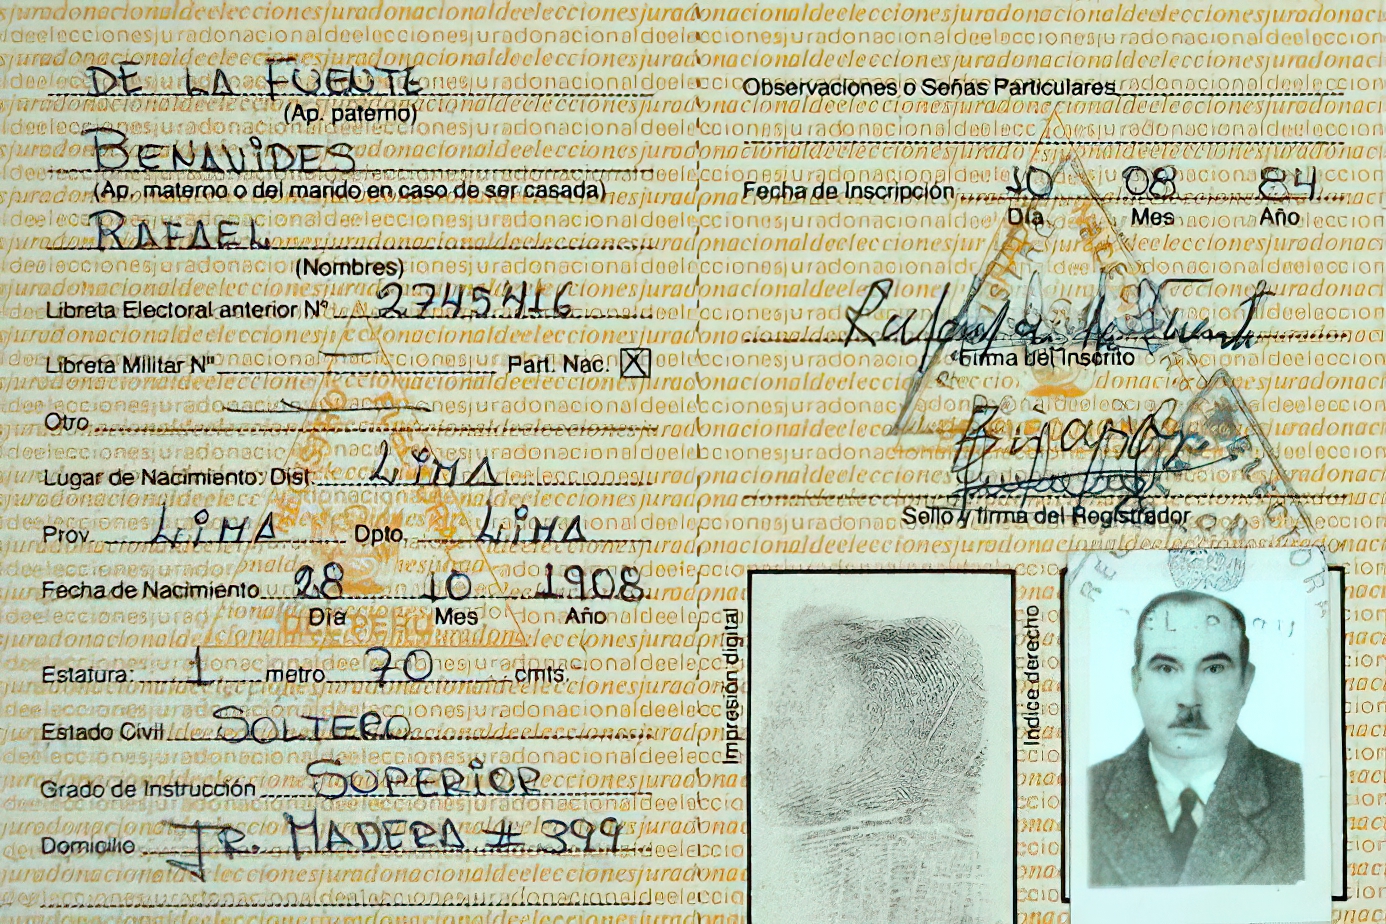 DE LA FUENTE
(Ap. paterno)
BENAViDES
(Ap. materno o del marido en caso de ser casada)
RAFAEL
(Nombres)
Libreta Electoral anterior Nº 2745416
Libreta Militar Nº Part. Nac. X
Otro
Lugar de Nacimiento: Dist. LiMA
Prov. LiMA Dpto. LiMA
Fecha de Nacimiento 28 10 1908
Día Mes Año
Estatura: 1 metro 70 cmts.
Estado Civil SOLTERO
Grado de Instrucción SUPERiOR
Domicilio JR. MADERA # 399
Observaciones o Señas Particulares
Fecha de Inscripción 10 08 84
Día Mes Año
Rafael de la Fuente
Firma del Inscrito
Sello y firma del Registrador
Impresión digital
Indice derecho